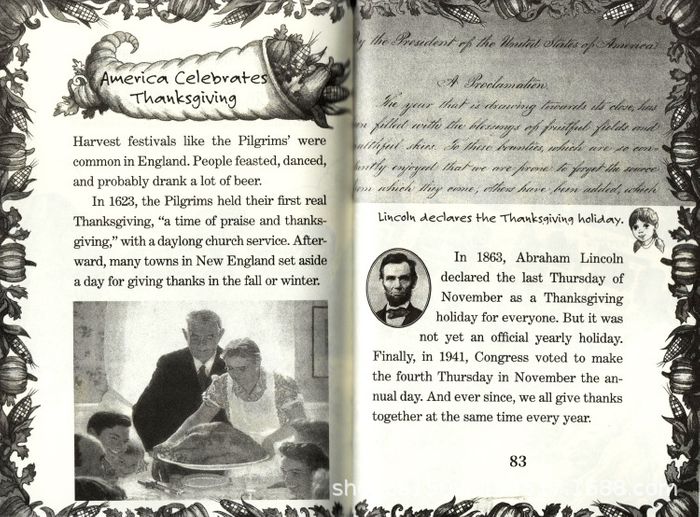 America Celebrates
Thanksgiving
Harvest festivals like the Pilgrims' were
common in England. People feasted, danced,
and probably drank a lot of beer.
In 1623, the Pilgrims held their first real
Thanksgiving, “a time of praise and thanks-
giving,” with a daylong church service. After-
ward, many towns in New England set aside
a day for giving thanks in the fall or winter.
by the President of the United States of America
A Proclamation
The year that is drawing towards its close, has
filled with the blessings of fruitful fields and
skies. To these bounties, which are so con-
enjoyed that we are prone to forget the source
which they come, others have been added, which
Lincoln declares the Thanksgiving holiday.
In 1863, Abraham Lincoln
declared the last Thursday of
November as a Thanksgiving
holiday for everyone. But it was
not yet an official yearly holiday.
Finally, in 1941, Congress voted to make
the fourth Thursday in November the an-
nual day. And ever since, we all give thanks
together at the same time every year.
83